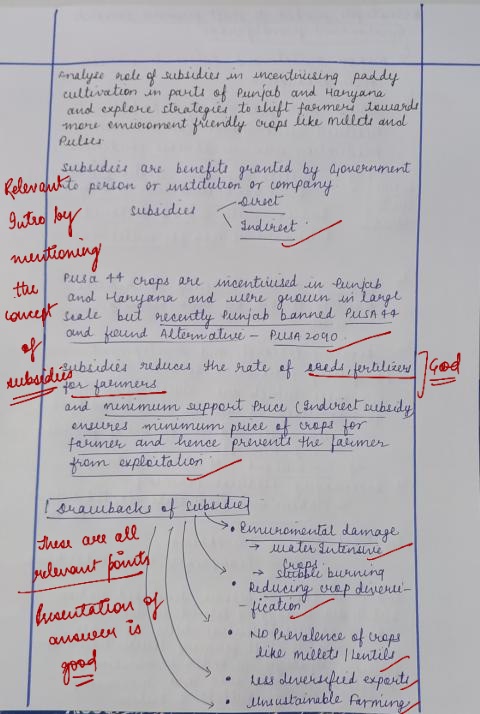 Analyse role of subsidies in incentivising paddy
cultivation in parts of Punjab and Haryana
and explore strategies to shift farmers towards
more enviroment friendly crops like Millets and
Pulses
Subsidies are benefits granted by Government
to person or institution or company
Subsidies
Direct
Indirect
Relevant
Intro by
mentioning
the
concept
of
subsidies
Pusa 44 crops are incentivised in Punjab
and Haryana and were grown in large
scale but recently Punjab banned PUSA 44
and found Alternative - PUSA 2090
Subsidies reduces the rate of seeds, fertilizers
for farmers
Good
and minimum support Price (Indirect subsidy
ensures minimum price of crops for
farmer and hence prevents the farmer
from exploitation
Drawbacks of Subsidie
• Enviromental damage
→ Water Intensive
Crops
→ Stubble burning
• Reducing crop diversi-
-fication
• NO Prevalence of crops
like millets / lentils
• Less diversified exports
• Unsustainable Farming
These are all
relevant points
Presentation of
answer is
good